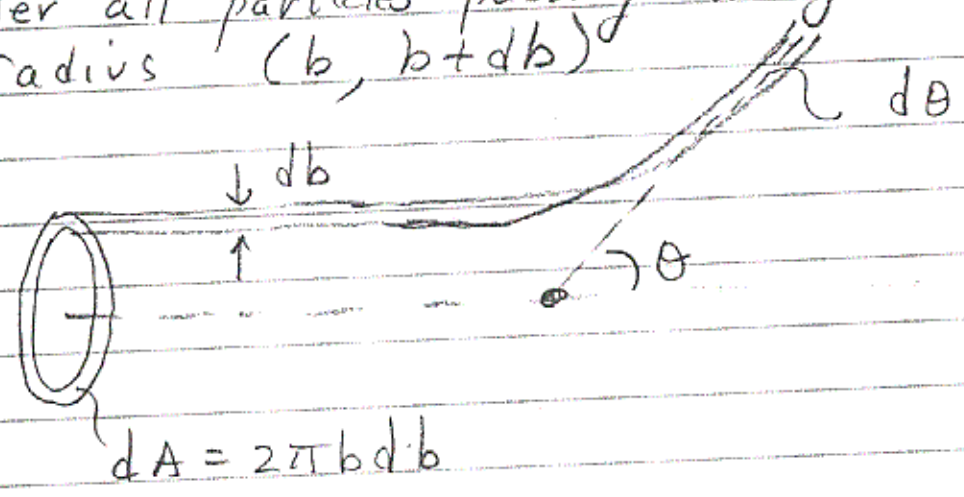 all particles
radius (b, b+db)
dθ
db
θ
dA = 2πbdb